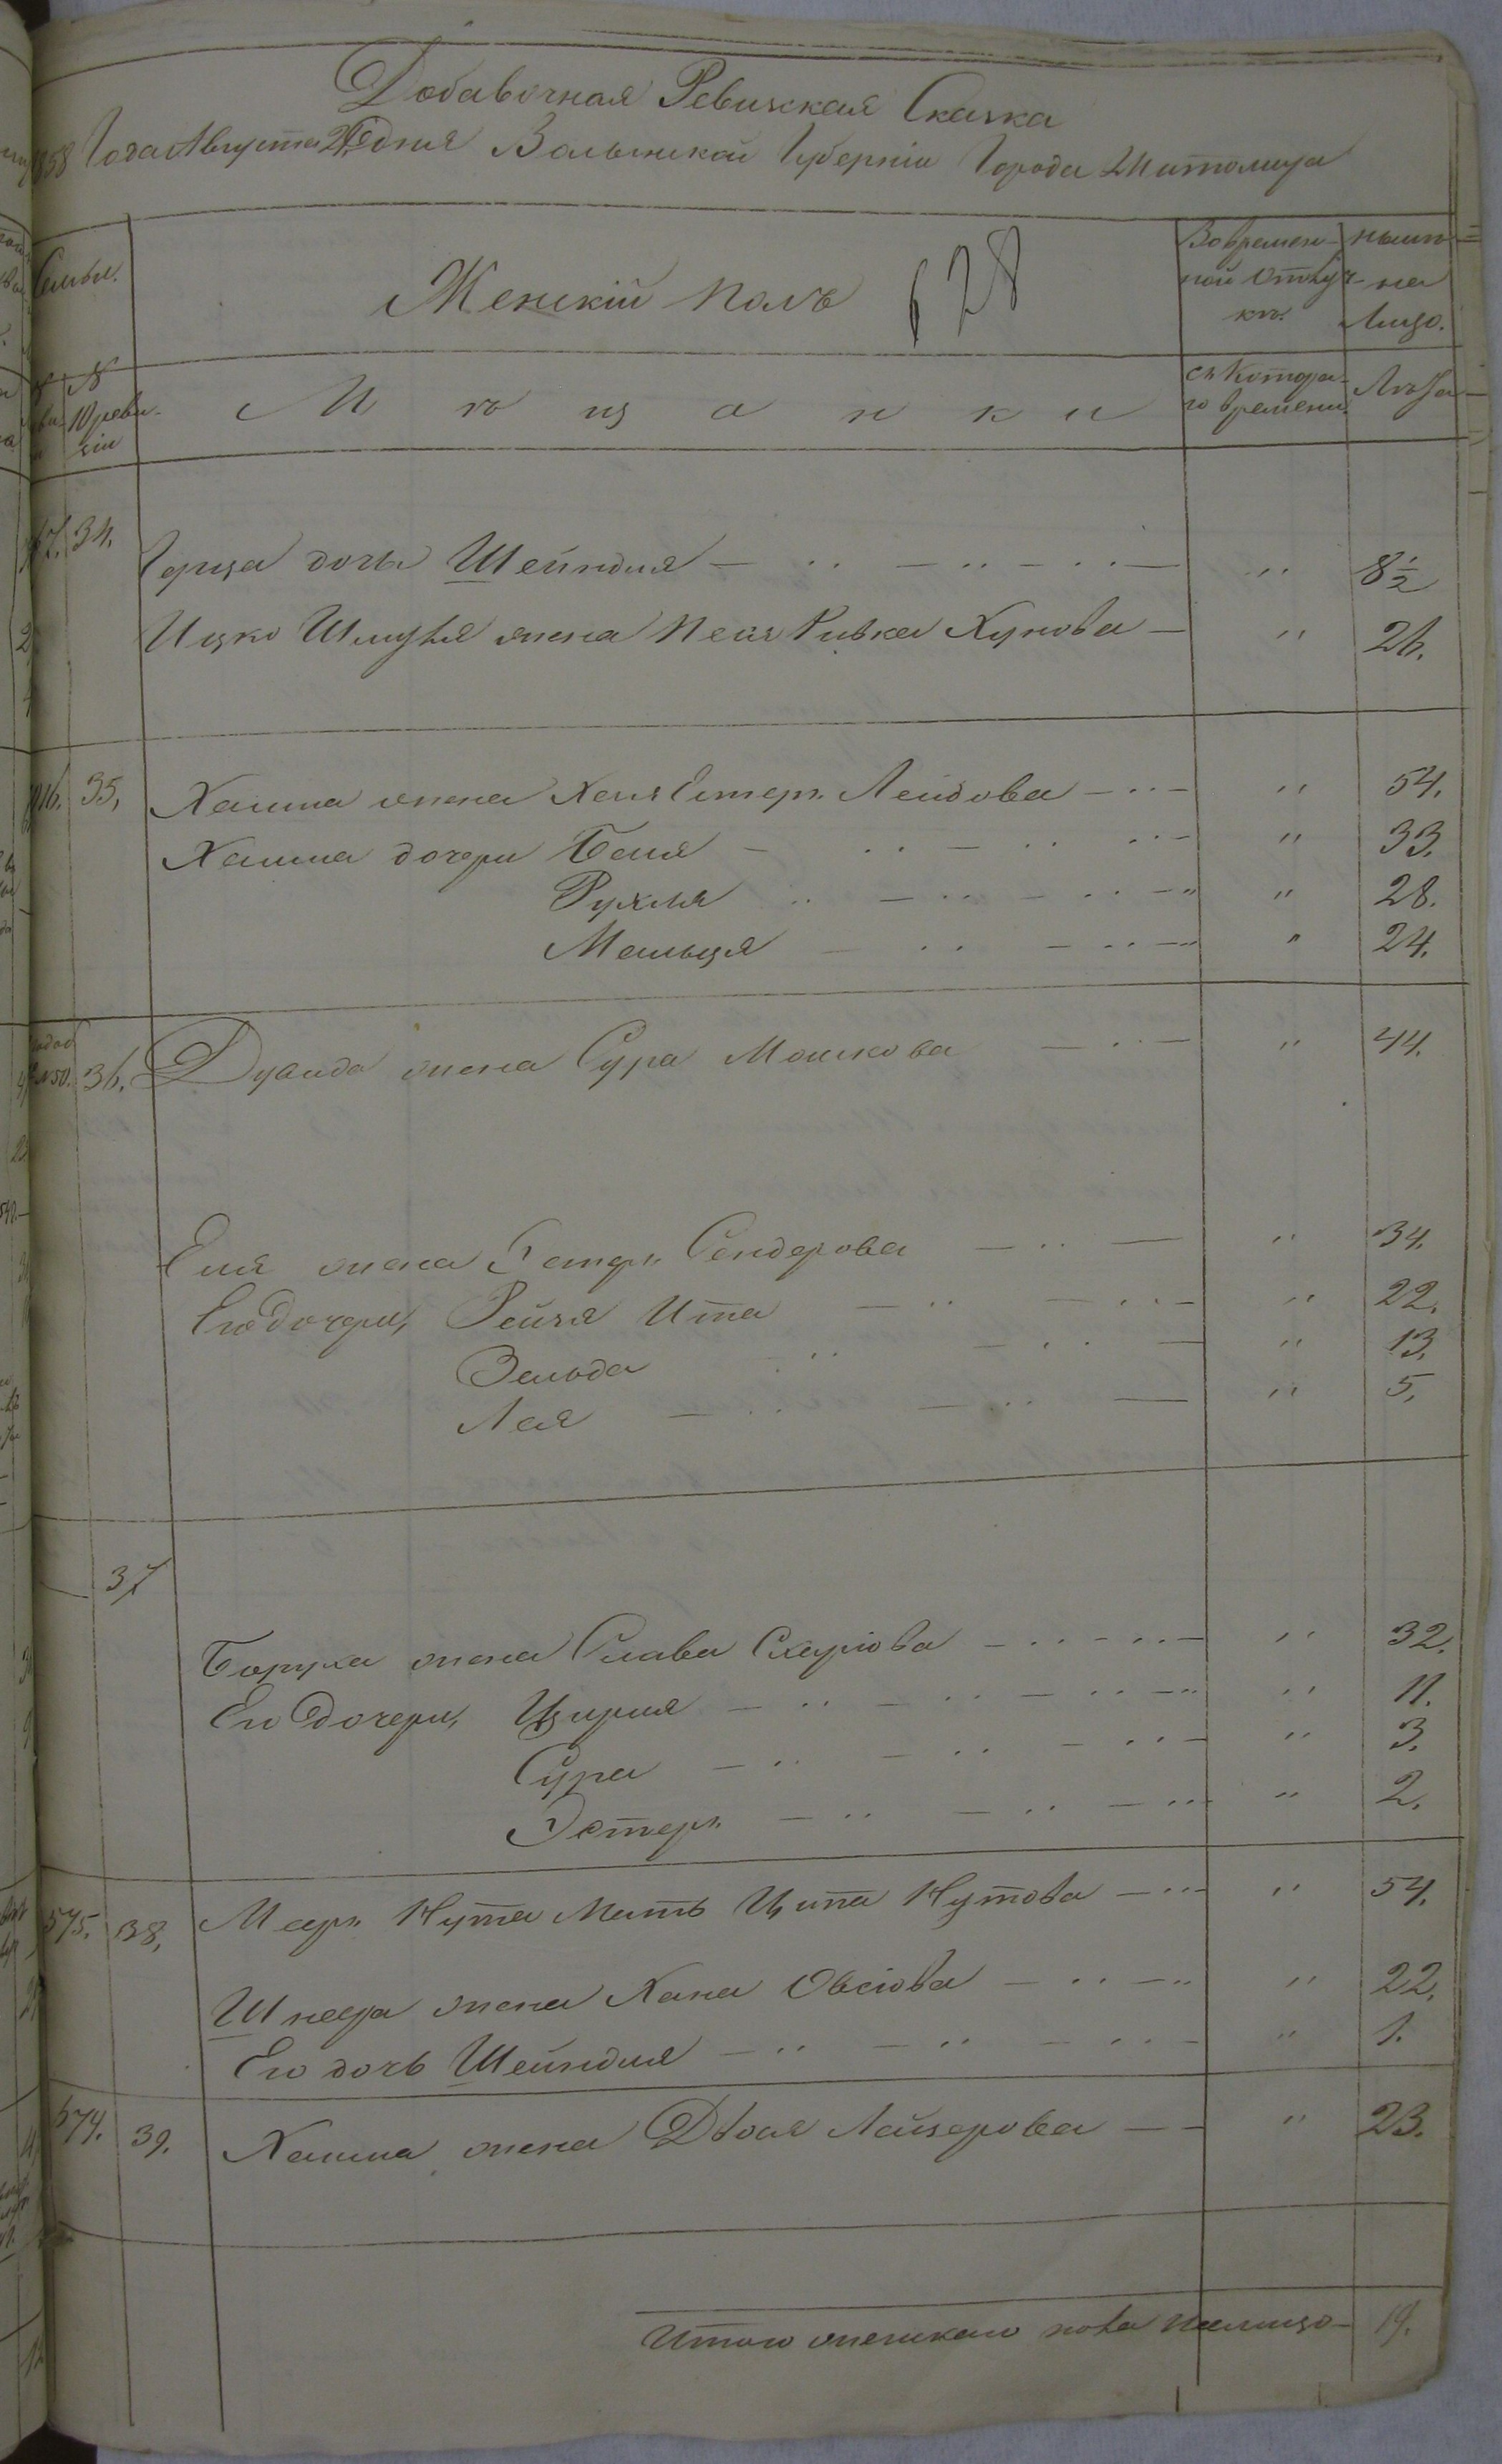 Добавочная Ревизская Сказка
1858 Года Августа дня Волынской Губерніи Города Житомира
Семьи.
Женскій полъ 628
Во времен-
ной отлуч-
кѣ.
нынѣ
на
Лицо.
№
10 реви-
зіи
Мѣщанки
съ котора-
го времени.
Лѣта
34. Герша дочь Шейндля — " 8½
Ицко Шмуля жена Песя Ривка Хунова — " 26.
16. 35, Хаима жена Хая Естеръ Лейбова — " 54.
Хаима дочери Бася — " 33.
Рухля — " 28.
Мальця — " 24.
№ 50. 36. Дувида жена Сура Мошкова — " 44.
Еля жена Естеръ Сендерова — " 34.
Его дочери, Рейзя Ита — " 22.
Зельда — " 13.
Лея — " 5.
37
Боруха жена Слава Схаріова — " 32.
Его дочери, Цирля — " 11.
Сура — " 3.
Эстеръ — " 2.
575. 38, Мееръ Нута Мать Ципа Нутова — " 54.
Шнеера жена Хана Овсіова — " 22.
Его дочь Шейндля — " 1.
574. 39. Хаима жена Двося Лейзерова — " 23.
Итого женскаго пола налицо — 19.